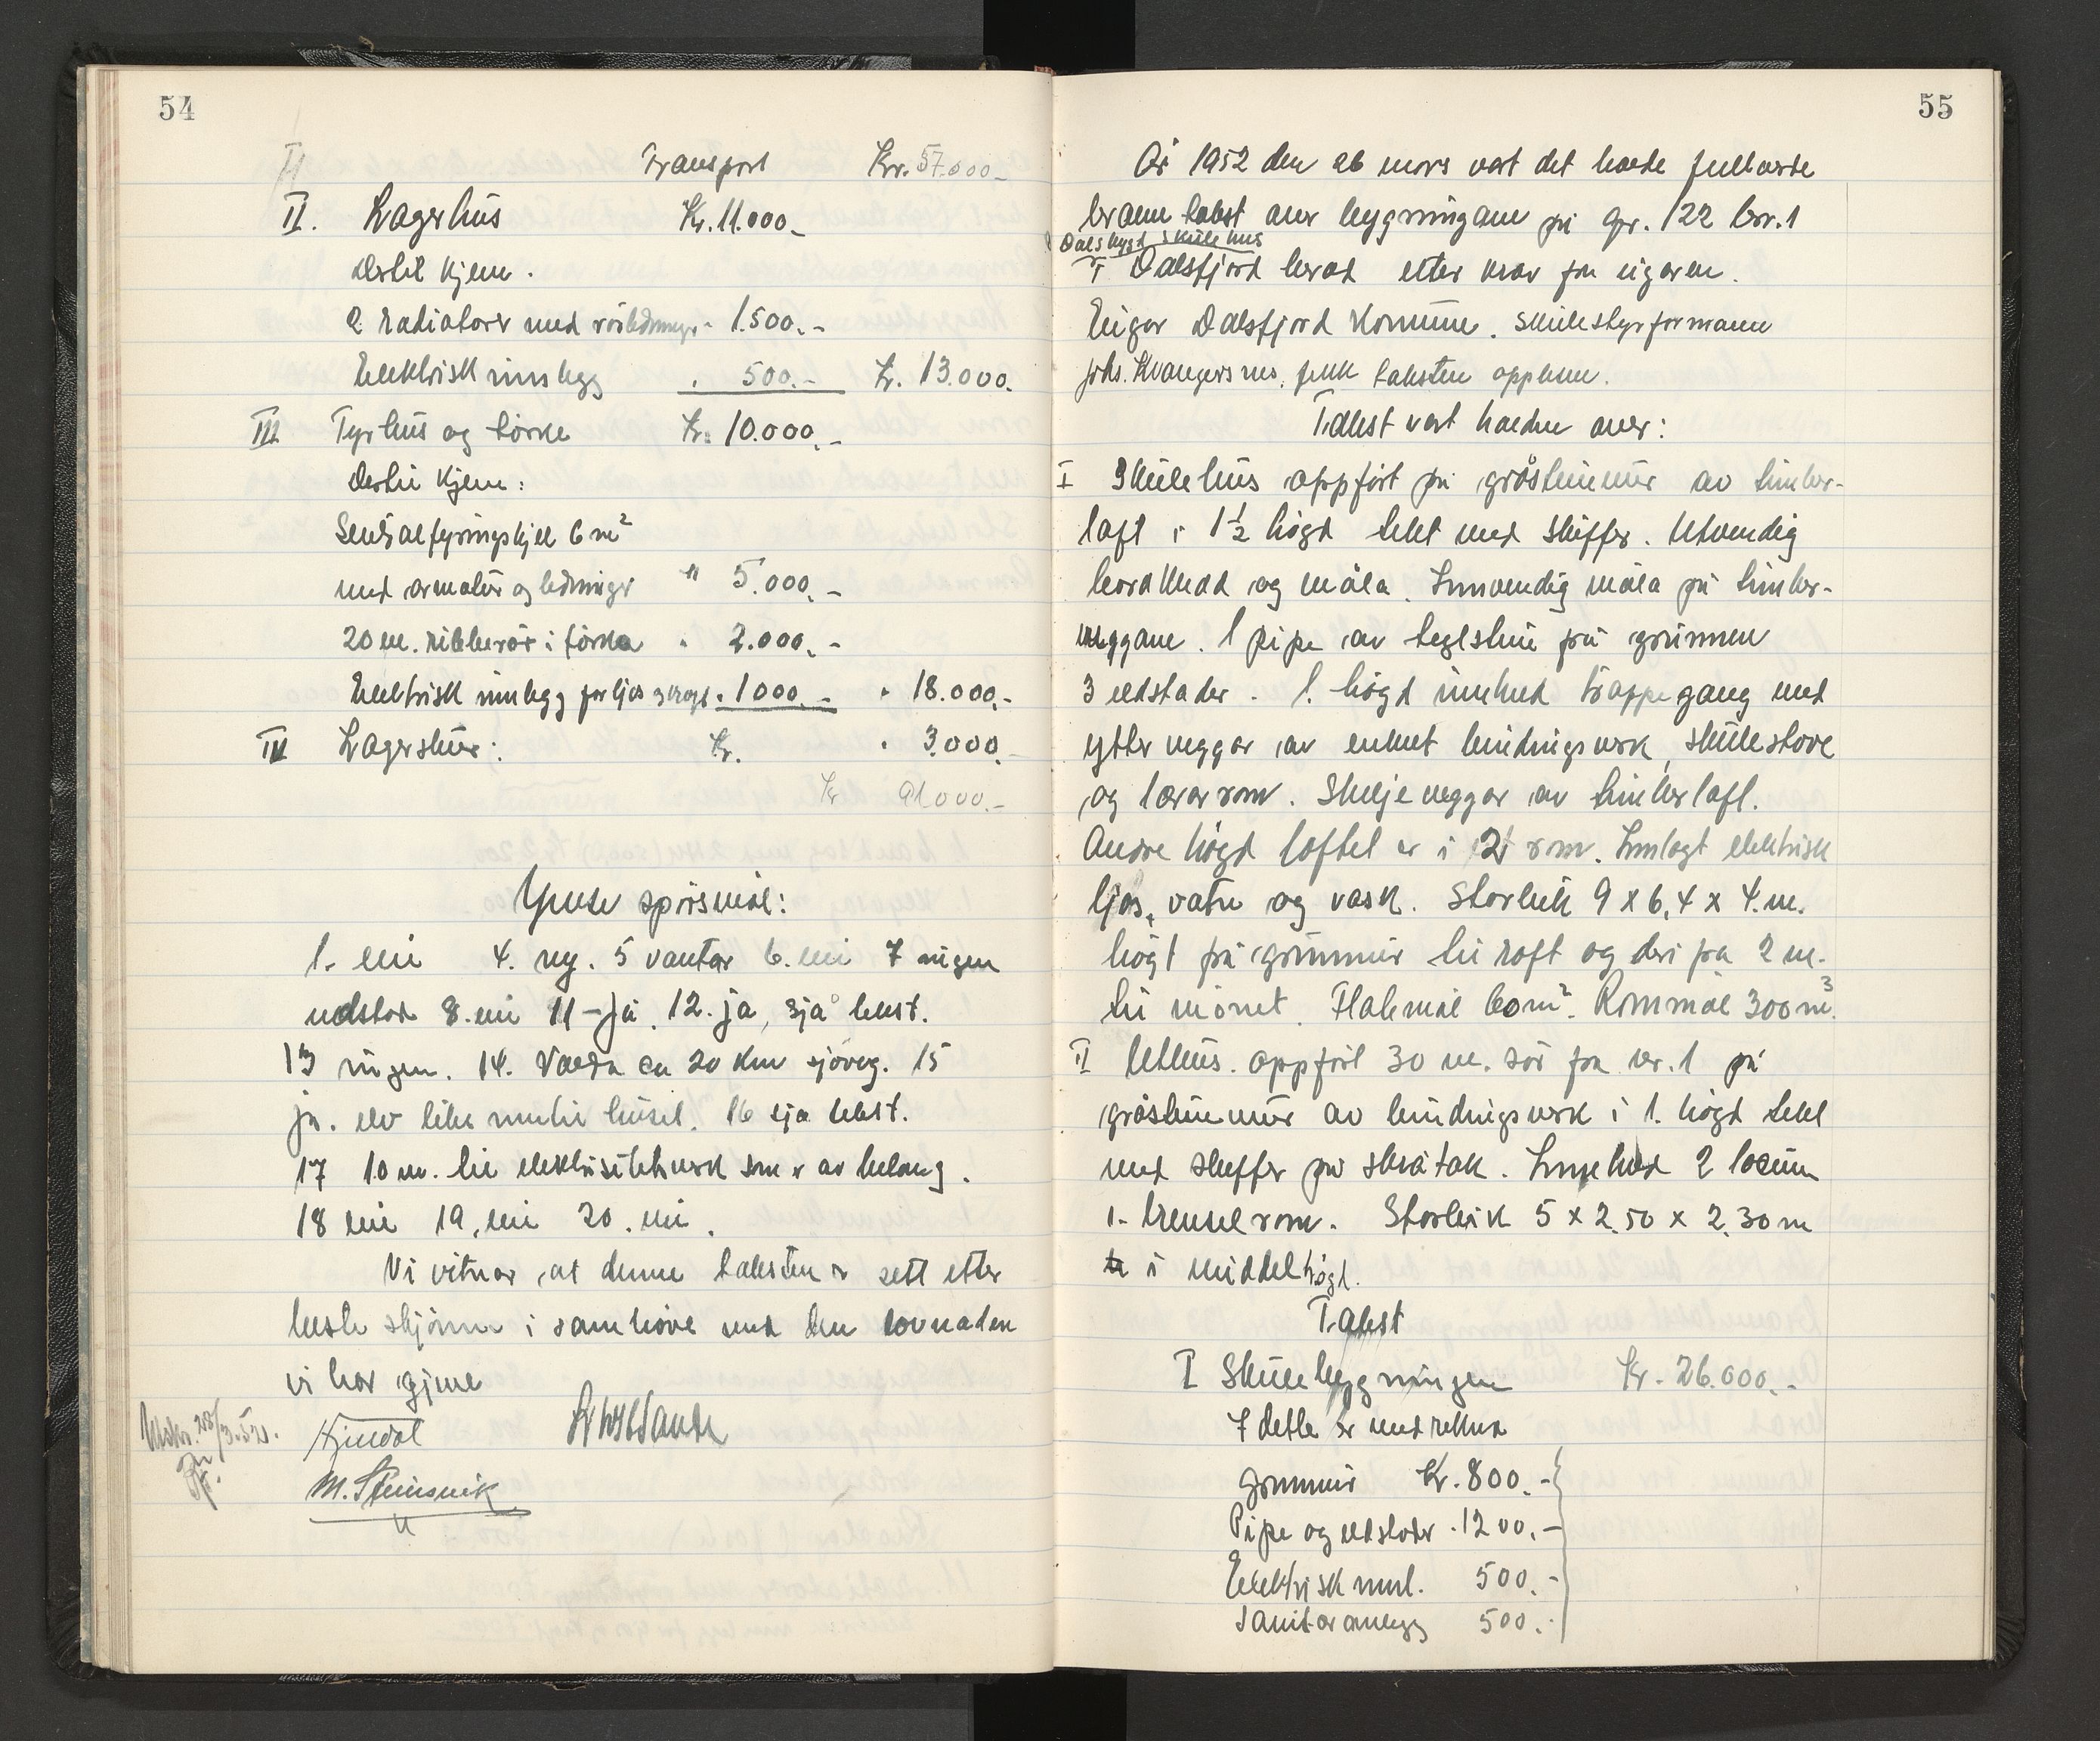 54
II Transport Kr. 57.000.-
II. Lagerhus Kr. 11.000.-
Dertil kjem.
2 radiatorar med rörledningar " 1.500.-
Elektrisk innlegg " 500.- Kr. 13.000.
III Fyrhus og törke Kr. 10.000.-
Dertil kjem:
Sentralfyringskjel 6 m²
med armatur og ledningar " 5.000.-
20 m. ribberör i törka " 2.000.-
Elektrisk innlegg for ljos og kraft " 1000.- " 18.000.-
IV Lagerskur: Kr. " 3.000.-
Kr 91000.-
Ymse spörsmål:
1. nei 4. ny. 5 vantar 6. nei 7 ingen
eldstad 8. nei 11 - ja. 12. ja, sjå takst.
13 ingen. 14. Volda ca 20 km sjöveg. 15
ja. elv like med huset. 16 sjå takst.
17 10 m. til elektrisitetsverk som er av belang.
18 nei 19. nei 20. nei.
Vi vitnar at denne taksten er sett etter
beste skjönn i samhöve med den lovnaden
vi har gjeve
Utskr. 28/3-52.
M. Steinsvik
55
År 1952 den 26 mars vart det halde fullverde
brann takst over bygningane på gnr. 122 bnr. 1
Dalsbygd skulehus
i Dalsfjord herad etter krav fra eigaren.
Eigar Dalsfjord kommune. Skulestyrformann
Johs. Kvangersnes, fekk taksten opplesen.
Takst vart halden over:
I Skulehus oppfört på gråsteinmur av timber-
laft i 1½ högd tekt med skiffer. Utvendig
bordkledd og måla. Innvendig måla på timber-
veggane. 1 pipe av teglstein frå grunnen
3 eldstader. 1. högd inneheld trappegang med
ytter veggar av enkelt bindingsverk, skulestove
og lærarrom. Skiljeveggar av timberlaft.
Andre högd loftet er i 2 rom. Innlagt elektrisk
ljos, vatn og vask. Storleik 9 x 6,4 x 4. m.
högt frå grunnmur til raft og deri frå 2 m.
til mönet. Flatemål 60 m². Rommål 300 m³.
II Uthus. oppfört 30 m. sör fra nr. 1 på
gråsteinmur av bindingsverk i 1. högd tekt
med skiffer på skråtak. Inneheld 2 locum
1. brenselrom. Storleik 5 x 2.50 x 2.30 m
i middelhögd.
Takst
I Skulebygningen Kr. 26.000.-
I dette er medrekna
Grunnmur Kr. 800.-
Pipe og eldstader " 1200.-
Elektrisk innl. 500.-
Sanitæranlegg 500.-